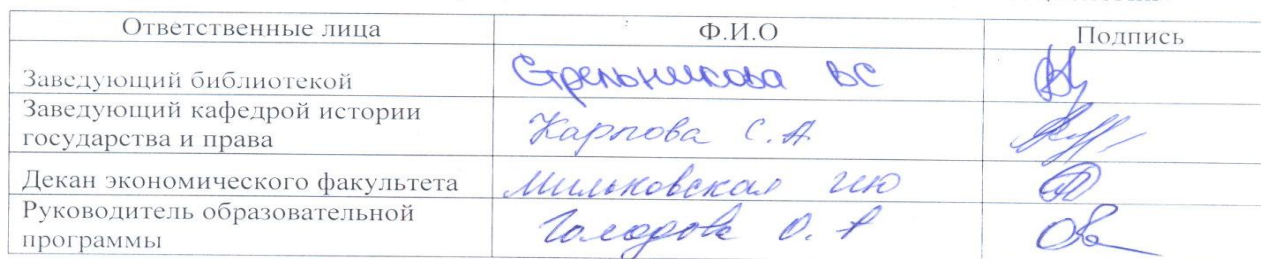 Ответственные лица Ф.И.О Подпись
Заведующий библиотекой Стрельникова ВС
Заведующий кафедрой истории
государства и права Карпова С.А
Декан экономического факультета Мильковская ИЮ
Руководитель образовательной
программы О.А